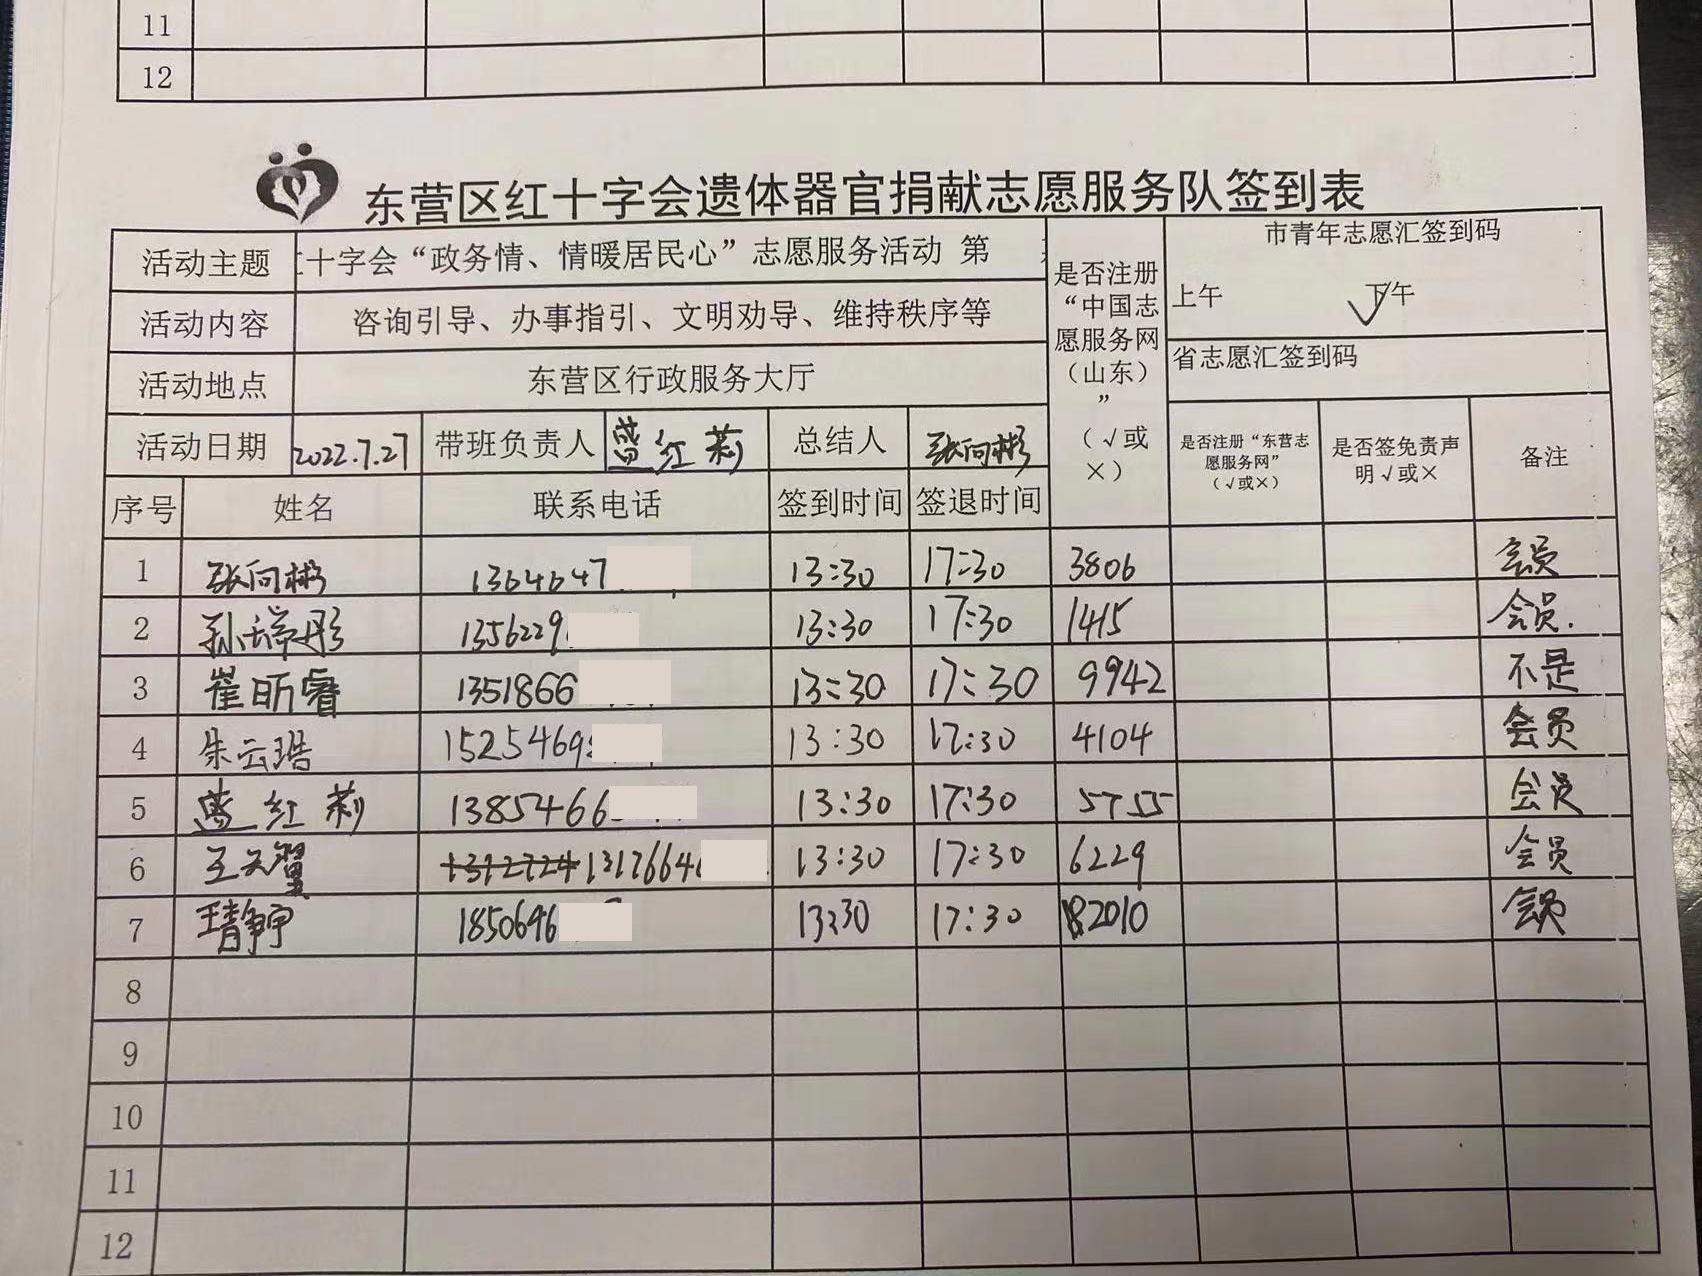 11
12
东营区红十字会遗体器官捐献志愿服务队签到表
活动主题 十字会“政务情、情暖居民心”志愿服务活动 第
是否注册“中国志愿服务网（山东）”（√或×）
市青年志愿汇签到码
上午 下午 √
活动内容 咨询引导、办事指引、文明劝导、维持秩序等
省志愿汇签到码
活动地点 东营区行政服务大厅
活动日期 2022.7.27 带班负责人 红莉 总结人 张向彬
是否注册“东营志愿服务网”（√或×） 是否签免责声明√或× 备注
序号 姓名 联系电话 签到时间 签退时间
1 张向彬 1364647 13:30 17:30 3806 会员
2 孙瑞彤 1356229 13:30 17:30 1415 会员.
3 崔昕睿 1351866 13:30 17:30 9942 不是
4 朱云浩 1525469 13:30 17:30 4104 会员
5 红莉 1385466 13:30 17:30 5755 会员
6 王天翼 1317664 13:30 17:30 6229 会员
7 王静宇 1850646 13:30 17:30 2010 会员
8
9
10
11
12